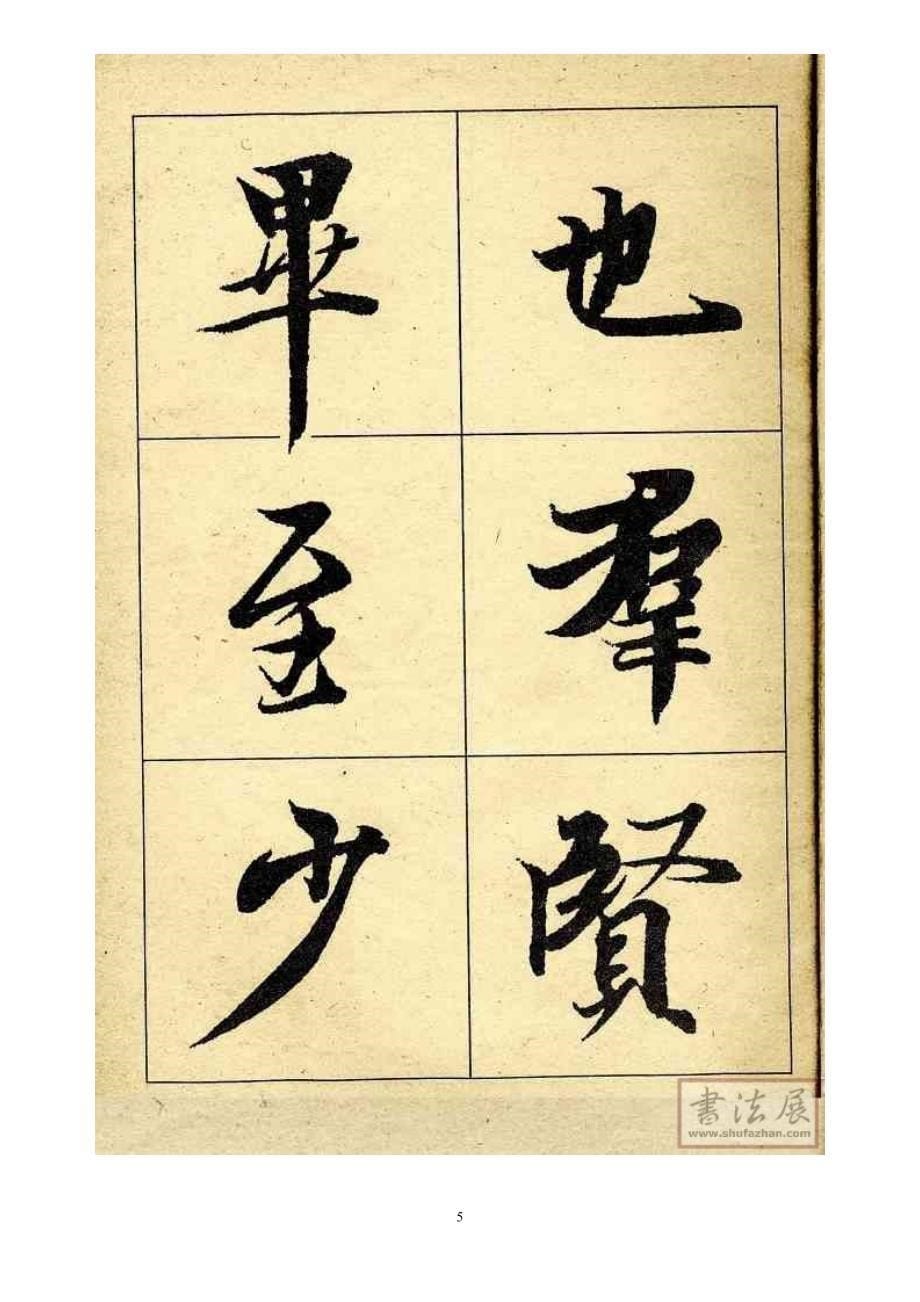 也羣賢
畢至少
書法展
www.shufazhan.com
5